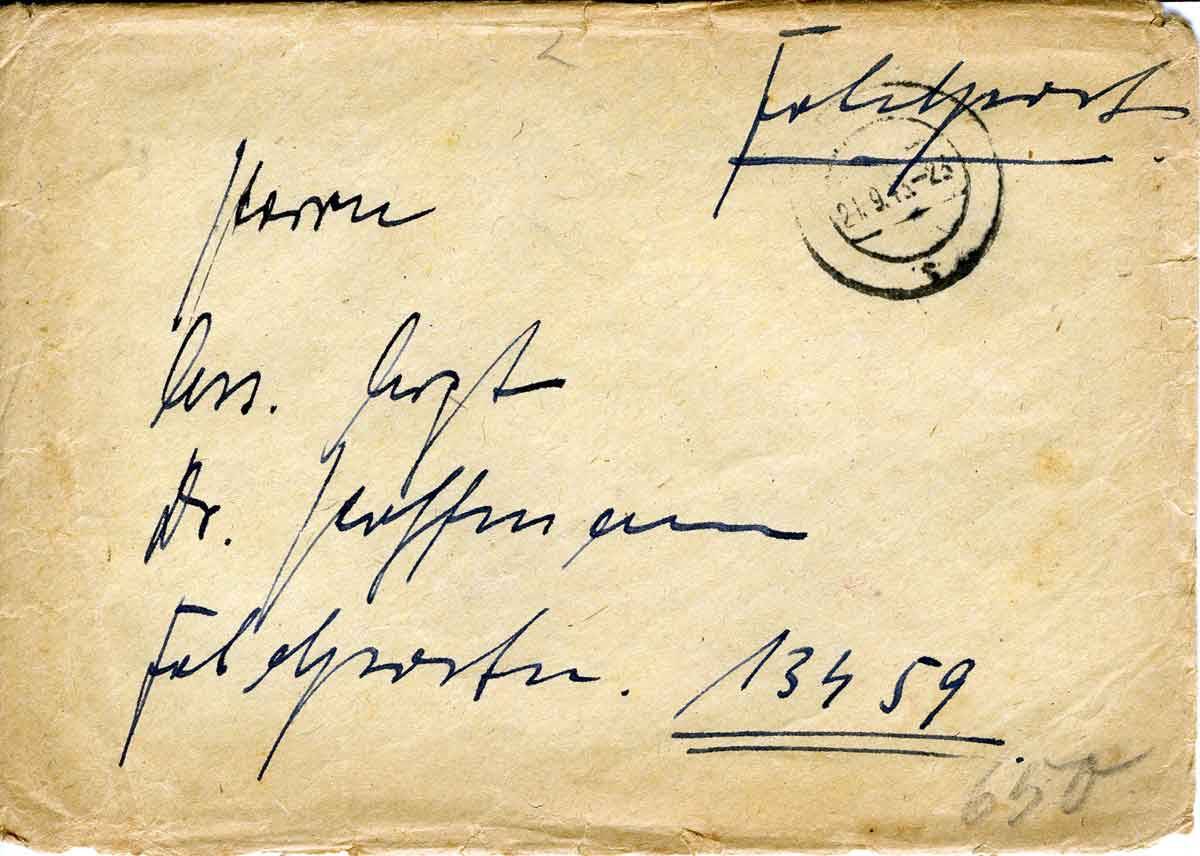 Feldpost
21.9.43-23
Herrn
Ass. Arzt
Dr. Hoffmann
Feldpostn. 13459
650